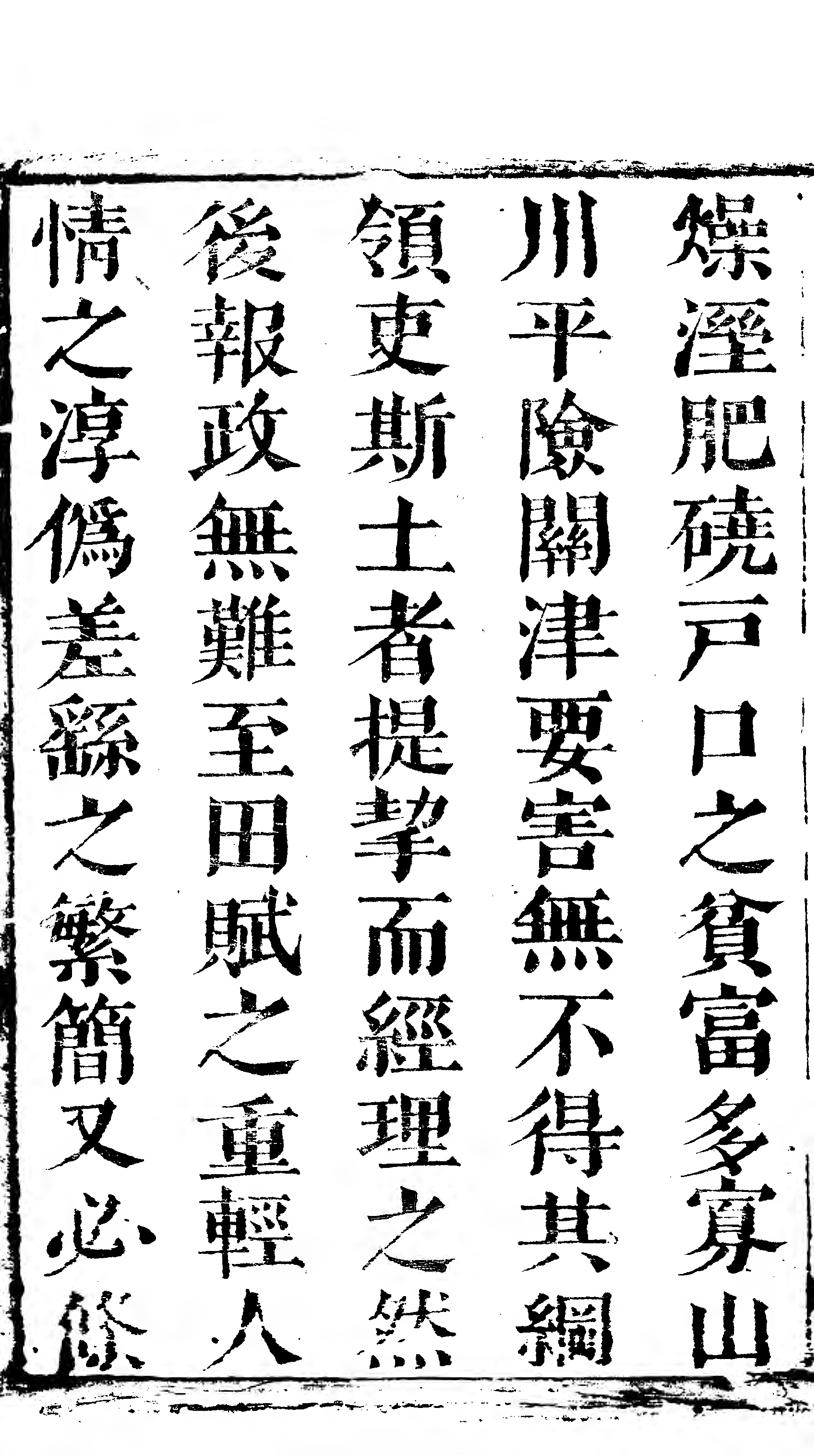 燥溼肥磽戸口之貧富多寡山
川平險關津要害無不得其綱
領吏斯土者提挈而經理之然
後報政無難至田賦之重輕人
情之淳僞差繇之繁簡又必條